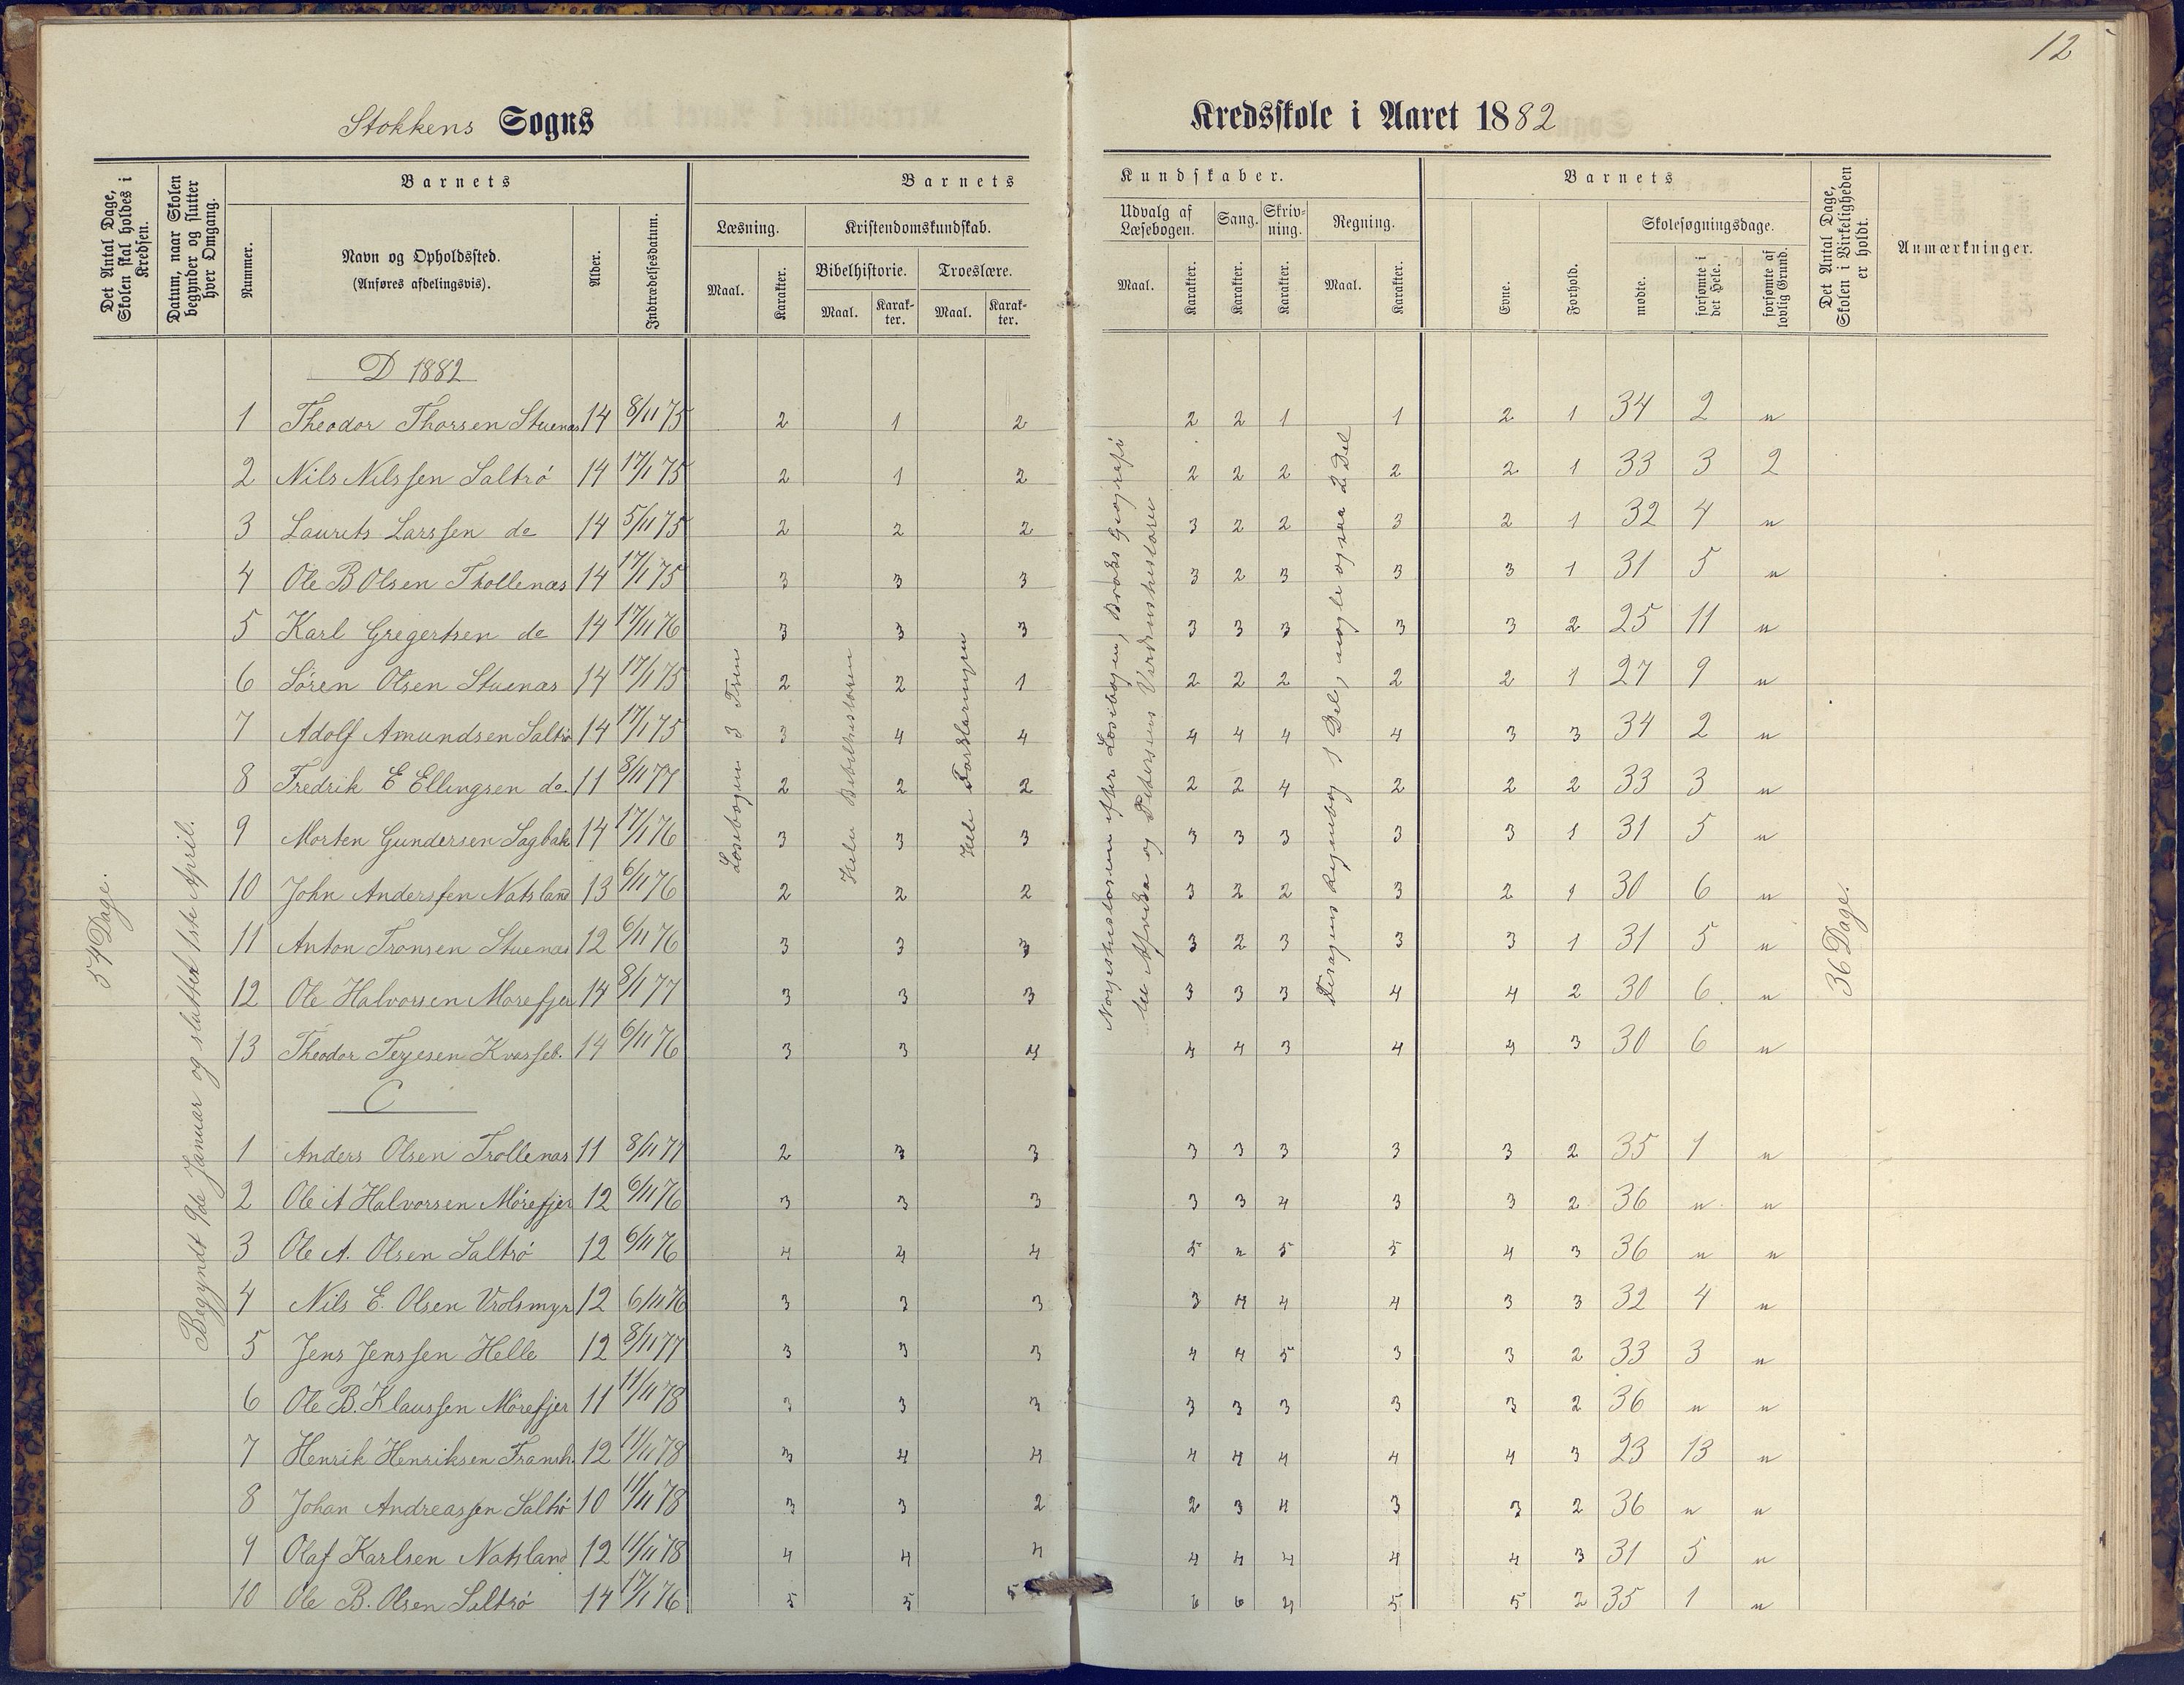 12
Stokkens Sogns
Kredsskole i Aaret 1882
Det Antal Dage, Skolen skal holdes i Kredsen.
Datum, naar Skolen begynder og slutter hver Omgang.
Barnets
Nummer.
Navn og Opholdssted.
(Anføres afdelingsvis).
Alder.
Indtrædelsesdatum.
Barnets
Læsning.
Maal.
Karakter.
Kristendomskundskab.
Bibelhistorie.
Maal.
Karak-ter.
Troeslære.
Maal.
Karak-ter.
Kundskaber.
Udvalg af Læsebogen.
Maal.
Karakter.
Sang.
Karakter.
Skriv-ning.
Karakter.
Regning.
Maal.
Karakter.
Barnets
Evne.
Forhold.
Skolesøgningsdage.
mødte.
forsømte i det Hele.
forsømte af lovlig Grund.
Det Antal Dage, Skolen i Virkeligheden er holdt.
Anmærkninger.
54 Dage.
Begyndt 9de Januar og sluttet 1ste April.
Læsebogen 3 Trin
Hele Bibelhistorien
Hele Forklaringen
Norgeshistorien efter Læsebogen, Brochs Geografi
og Petersens Verdenshistorie
Regnebog 1 Del, nogle ogsaa 2 Del
36 Dage.
D 1882
1 Theodor Thorsen Stuenæs 14 8/11 75 2 1 2 2 2 1 1 2 1 34 2 "
2 Nils Nilssen Saltrö 14 17/1 75 2 1 2 2 2 2 2 2 1 33 3 2
3 Laurets Larssen do 14 5/11 75 2 2 2 3 2 2 3 2 1 32 4 "
4 Ole B Olsen Thollenæs 14 17/1 75 3 3 3 3 2 3 3 3 1 31 5 "
5 Karl Gregertsen do 14 17/11 76 3 3 3 3 3 3 3 3 2 25 11 "
6 Sören Olsen Stuenæs 14 17/1 75 2 2 1 2 2 2 2 2 1 27 9 "
7 Adolf Amundsen Saltrö 14 17/1 75 3 4 4 4 4 4 4 3 3 34 2 "
8 Fredrik E Ellingsen do. 11 8/11 77 2 2 2 2 2 4 2 2 2 33 3 "
9 Morten Gundersen Sagbak 14 17/1 76 3 3 3 3 3 3 3 3 1 31 5 "
10 John Anderssen Natsland 13 6/11 76 2 2 2 3 2 2 3 2 1 30 6 "
11 Anton Tronsen Stuenæs 12 6/11 76 3 3 3 3 2 3 3 3 1 31 5 "
12 Ole Halvorsen Morefjer 14 8/11 77 3 3 3 3 3 3 4 4 2 30 6 "
13 Theodor Terjesen Kvasseb. 14 6/11 76 3 3 4 4 4 3 4 4 3 30 6 "
C
1 Anders Olsen Trollenæs 11 8/11 77 2 3 3 3 3 3 3 3 2 35 1 "
2 Ole A Halvorsen Mörefjer 12 6/11 76 3 3 3 3 3 4 3 3 2 36 " "
3 Ole A. Olsen Saltrö 12 6/11 76 4 4 4 5 " 5 5 4 3 36 " "
4 Nils E. Olsen Vrolsmyr 12 6/11 76 3 3 3 3 4 4 4 3 3 32 4 "
5 Jens Jenssen Helle 12 8/11 77 3 3 3 4 4 5 3 3 2 33 3 "
6 Ole B. Klaussen Mörefjer 11 11/11 78 3 3 3 3 3 3 3 3 2 36 " "
7 Henrik Henriksen Fransh. 12 11/11 78 3 4 4 4 4 4 4 4 3 23 13 "
8 Johan Andreassen Saltrö 10 11/11 78 3 3 2 2 3 4 3 3 2 36 " "
9 Olaf Karlsen Natsland 12 11/11 78 4 4 4 4 4 4 4 4 3 31 5 "
10 Ole B. Olsen Saltrö 14 17/1 76 5 5 5 6 6 4 5 5 2 35 1 "